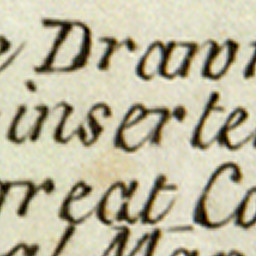 e Drawn
inserte
great Co
al Map